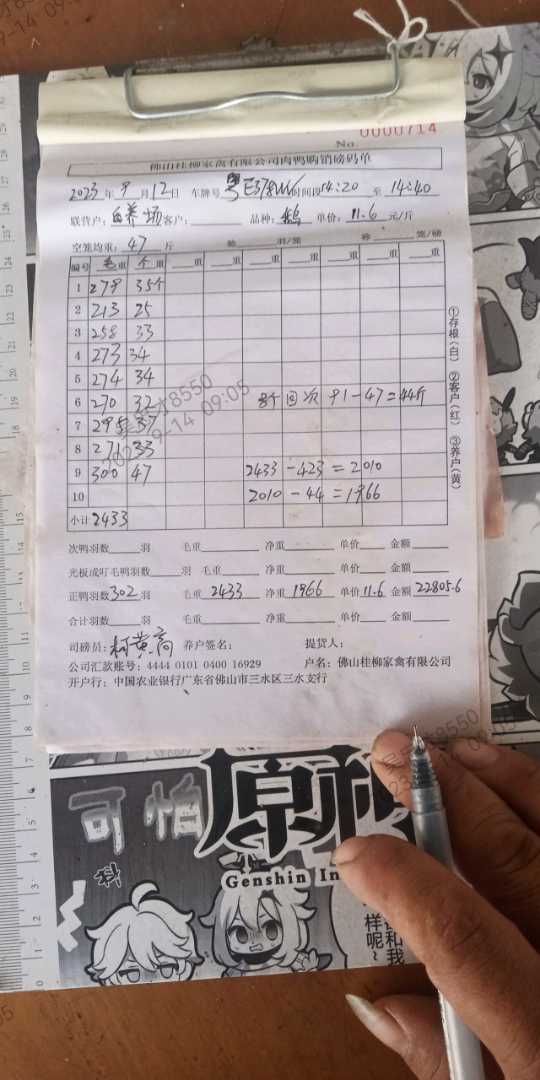 No. 0000714
佛山桂柳家禽有限公司肉鸭购销磅码单
2023年9月12日 车牌号 时间段14:20至14:40
联营户:自养场 客户: 品种:鹅 单价:11.6元/斤
空笼均重:47斤 羽/笼 称 笼/磅
编号 毛重 个重 重 重 重 重 重 重 重
1 279 35个
2 213 25
3 258 33
4 273 34
5 274 34
6 270 32 8个回次 91-47=44斤
7 295 37
8 271 33
9 300 47 2433-423=2010
10 2010-44=1966
小计 2433
①存根(白) ②客户(红) ③养户(黄)
次鸭羽数 羽 毛重 净重 单价 金额
光板或叮毛鸭羽数 羽 毛重 净重 单价 金额
正鸭羽数302羽 毛重2433 净重1966 单价11.6 金额22805.6
合计羽数 羽 毛重 净重 单价 金额
司磅员: 养户签名: 提货人:
公司汇款账号:4444 0101 0400 16929 户名:佛山桂柳家禽有限公司
开户行:中国农业银行广东省佛山市三水区三水支行
8550
09:05
可莉
原神
Genshin In
样呢~
和我